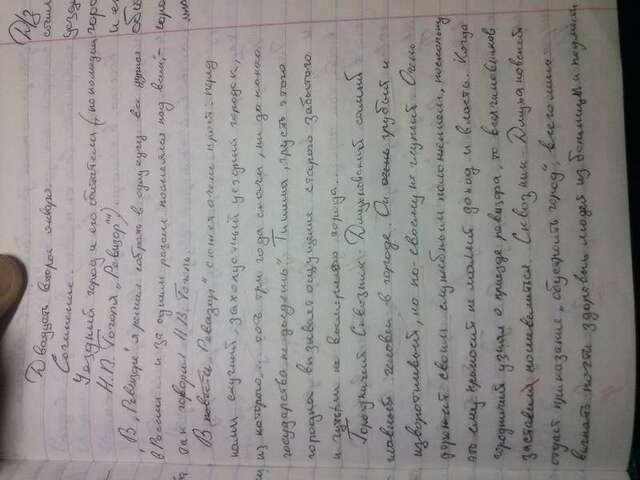 Двадцать второе января.
Сочинение.
Уездный город и его обитатели (по комедии
Н.В. Гоголя „Ревизор“)
В „Ревизоре“ я решил собрать в одну кучу все дурное
в России и за одним разом посмеяться над всем", –
так говорил Н.В. Гоголь.
В повести „Ревизор“ сюжет очень прост: перед
нами скучный, захолустный уездный городок,
из которого „хоть три года скачи, ни до какого
государства не доедешь". Тишина, грусть этого
городка вызывает ощущение старого забытого
и чуть ли не вымершего города...
Городничий Сквозник-Дмухановский самый
главный человек в городе. Он очень грубый и
изворотливый, но по-своему не глупый. Очень
дорожит своим служебным положением, поскольку
это ему приносит не малый доход и власть. Когда
городничий узнал о приезде ревизора, то всех чиновников
заставил пошевелиться. Сквозник-Дмухановский
отдает приказание „обустроить город", а именно
выгнать почти здоровых людей из больницы и подмести
Д/з
уезд
горо
и